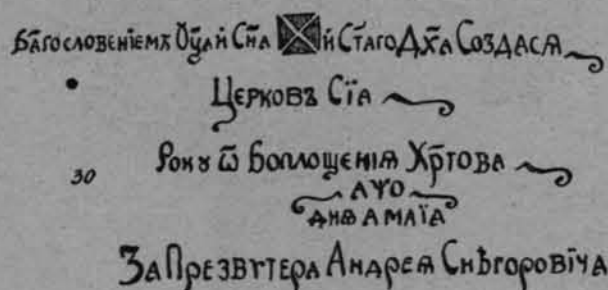 Бл҃гословенїемъ Оц҃а и Сн҃а и Ст҃аго Дх҃а Создасѧ
Церковъ Сїа
30 Рокꙋ ѿ Воплощенїѧ Хр҃това
АѰО
ДНѦ А МАЇА
За Презвѵтера Андреѧ Снѣгоровїча